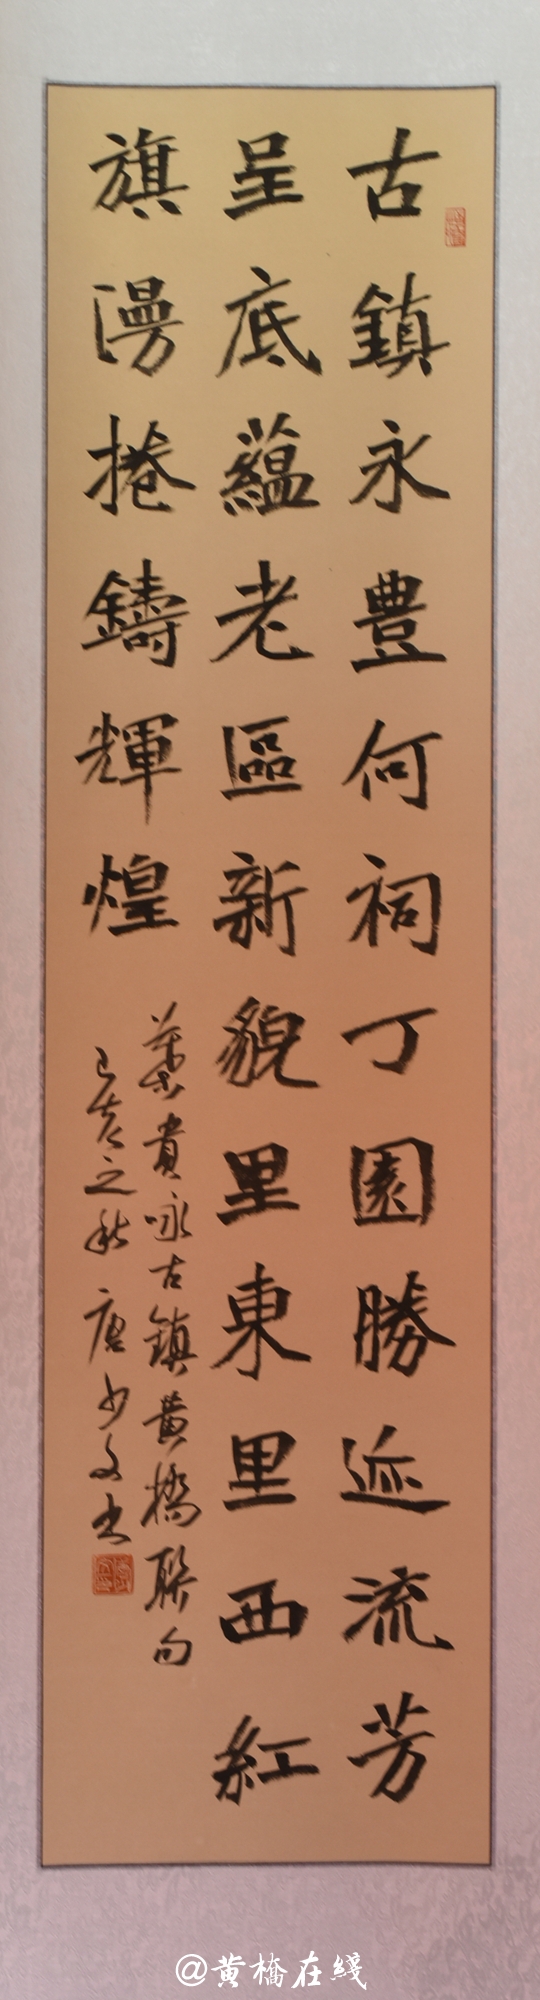 古鎮永豊何祠丁園勝迹流芳
呈底蘊老區新貌里東里西紅
旗漫捲鑄輝煌
葉貴咏古鎮黄橋聯句
己亥之秋唐少文书
@黄橋在綫